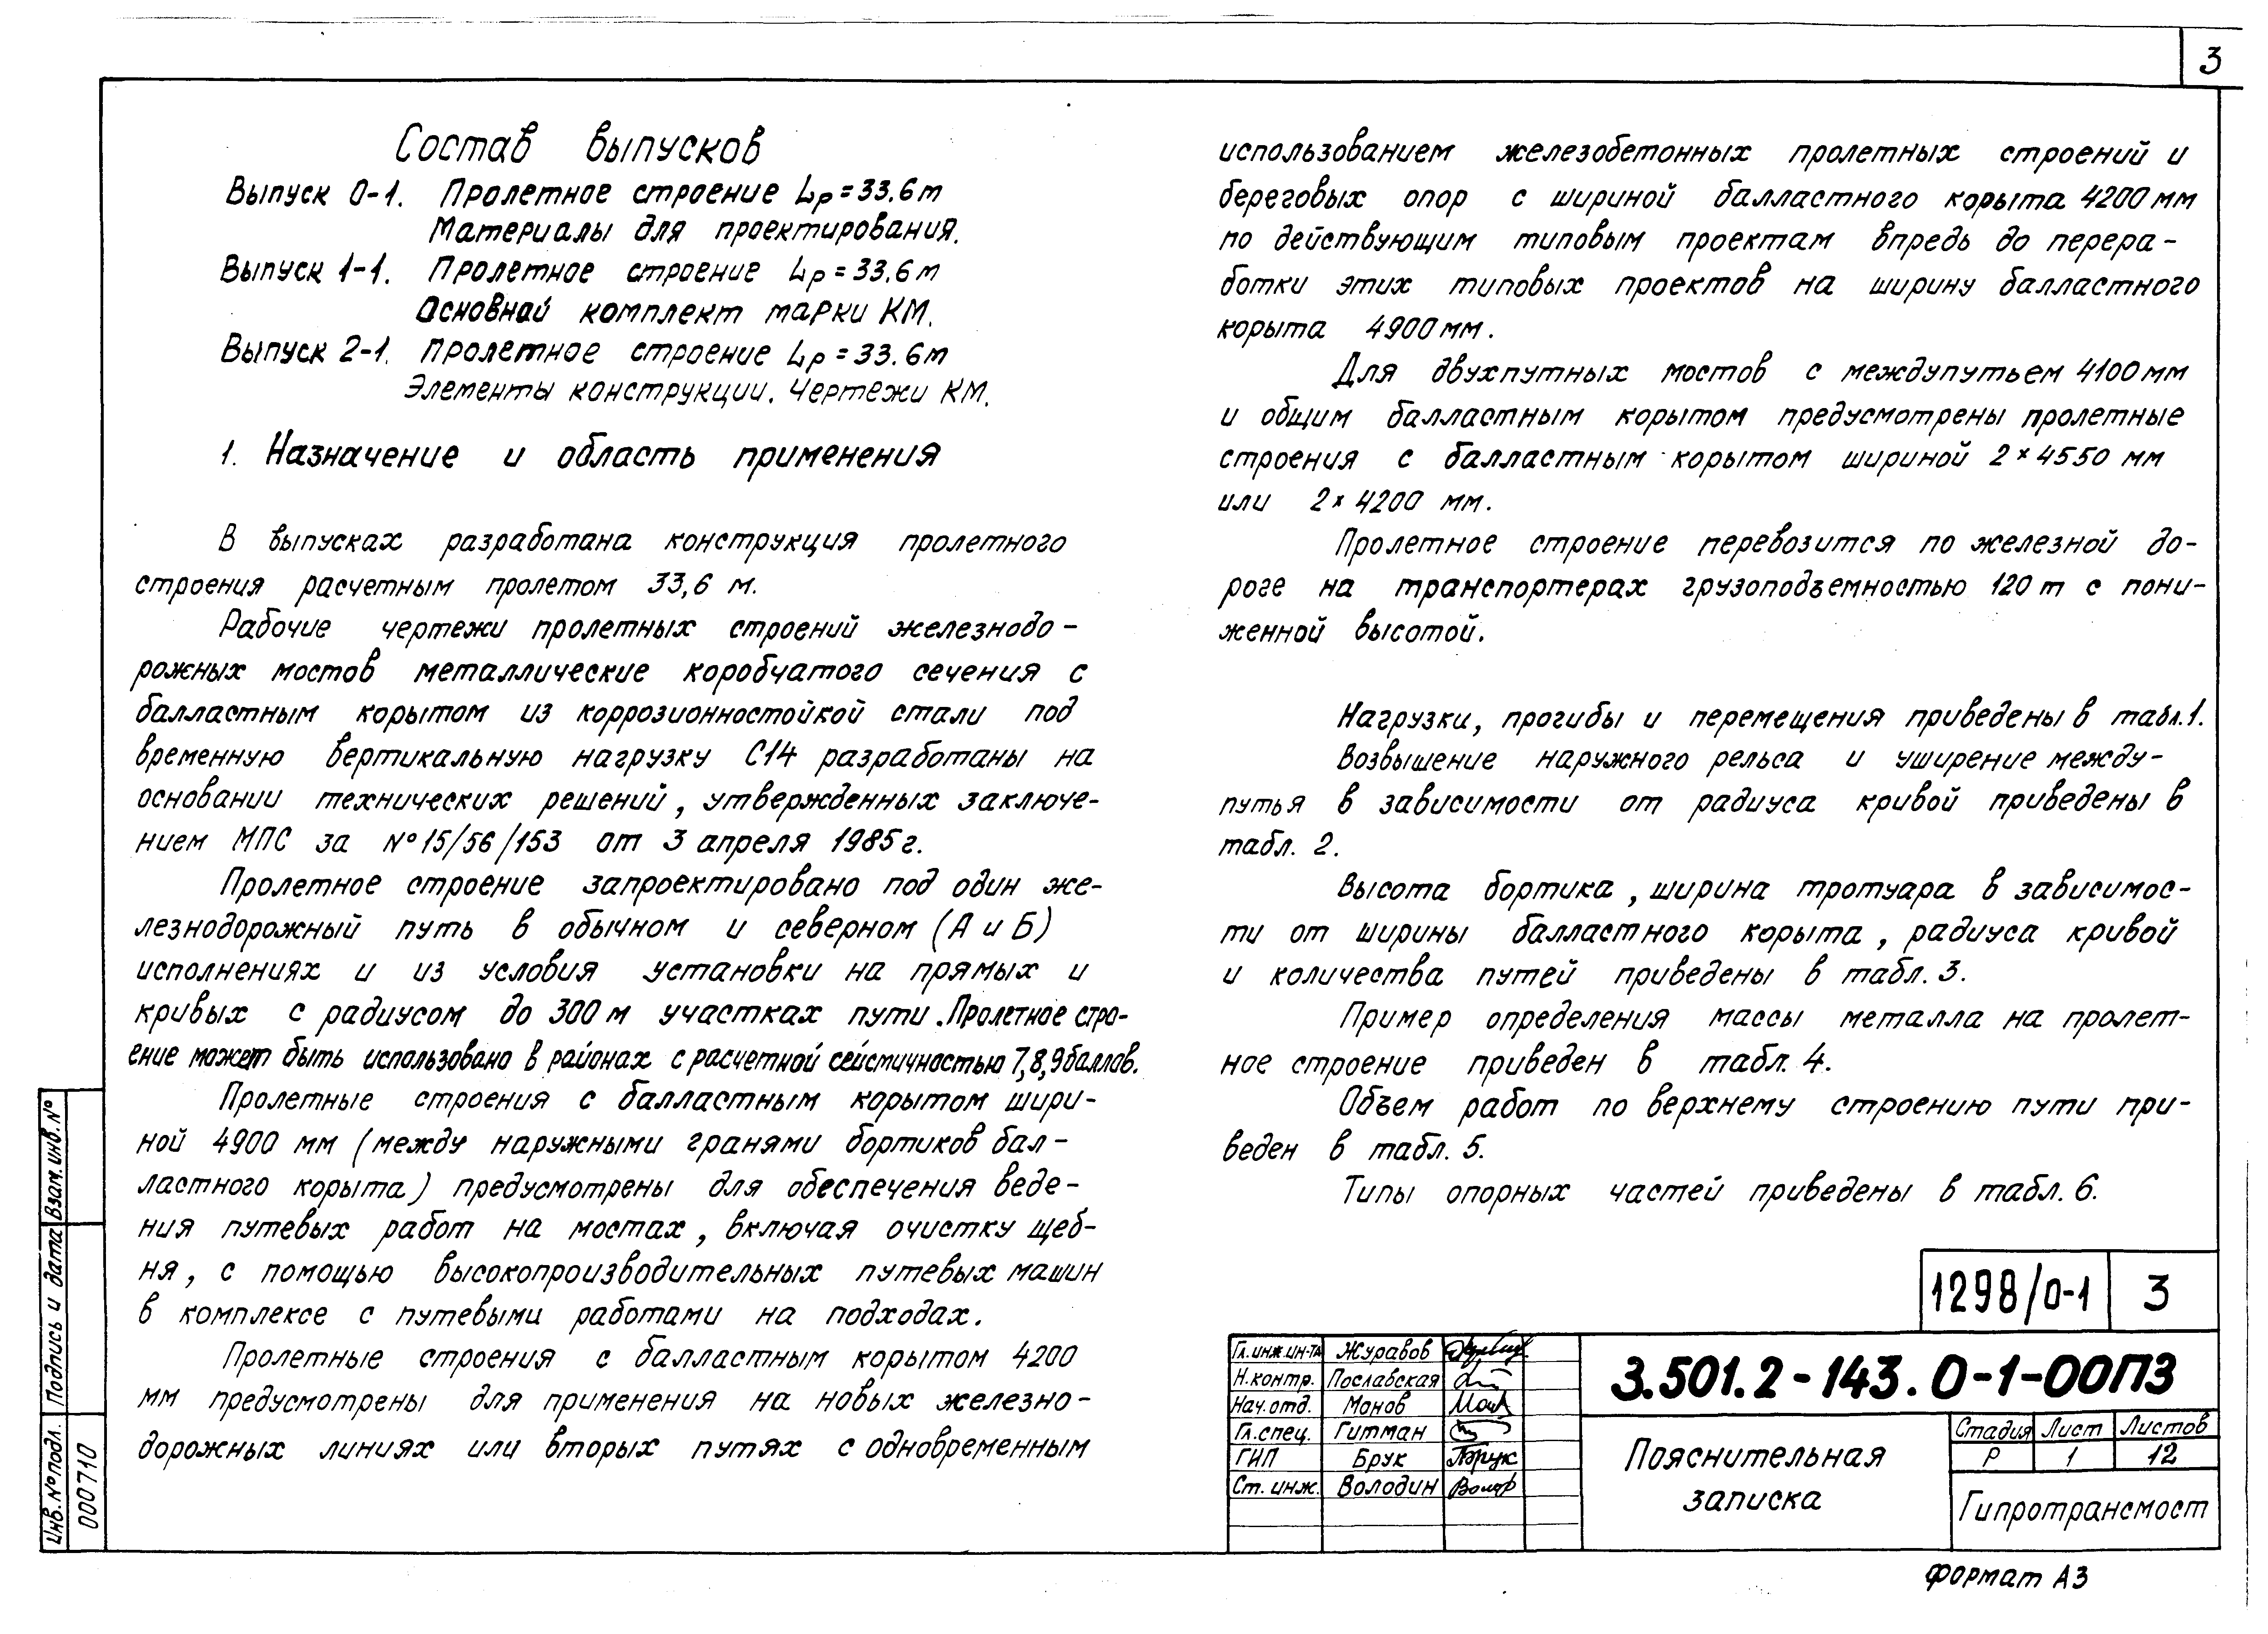 3
Состав выпусков
Выпуск 0-1. Пролетное строение Lр = 33.6 м
Материалы для проектирования.
Выпуск 1-1. Пролетное строение Lр = 33.6 м
Основной комплект марки КМ.
Выпуск 2-1. Пролетное строение Lр = 33.6 м
Элементы конструкции. Чертежи КМ.
1. Назначение и область применения
В выпусках разработана конструкция пролетного
строения расчетным пролетом 33,6 м.
Рабочие чертежи пролетных строений железнодо-
рожных мостов металлические коробчатого сечения с
балластным корытом из коррозионностойкой стали под
временную вертикальную нагрузку С14 разработаны на
основании технических решений, утвержденных заключе-
нием МПС за №15/56/153 от 3 апреля 1985г.
Пролетное строение запроектировано под один же-
лезнодорожный путь в обычном и северном (А и Б)
исполнениях и из условия установки на прямых и
кривых с радиусом до 300 м участках пути. Пролетное стро-
ение может быть использовано в районах с расчетной сейсмичностью 7,8,9 баллов.
Пролетные строения с балластным корытом шири-
ной 4900 мм (между наружными гранями бортиков бал-
ластного корыта) предусмотрены для обеспечения веде-
ния путевых работ на мостах, включая очистку щеб-
ня, с помощью высокопроизводительных путевых машин
в комплексе с путевыми работами на подходах.
Пролетные строения с балластным корытом 4200
мм предусмотрены для применения на новых железно-
дорожных линиях или вторых путях с одновременным
использованием железобетонных пролетных строений и
береговых опор с шириной балластного корыта 4200 мм
по действующим типовым проектам впредь до перера-
ботки этих типовых проектов на ширину балластного
корыта 4900 мм.
Для двухпутных мостов с междупутьем 4100 мм
и общим балластным корытом предусмотрены пролетные
строения с балластным корытом шириной 2×4550 мм
или 2×4200 мм.
Пролетное строение перевозится по железной до-
роге на транспортерах грузоподъемностью 120 т с пони-
женной высотой.
Нагрузки, прогибы и перемещения приведены в табл.1.
Возвышение наружного рельса и уширение между-
путья в зависимости от радиуса кривой приведены в
табл. 2.
Высота бортика, ширина тротуара в зависимос-
ти от ширины балластного корыта, радиуса кривой
и количества путей приведены в табл. 3.
Пример определения массы металла на пролет-
ное строение приведен в табл. 4.
Объем работ по верхнему строению пути при-
веден в табл. 5.
Типы опорных частей приведены в табл. 6.
1298/0-1 3
Гл.инж.ин-та Журавов
Н.контр. Пославская
Нач.отд. Монов
Гл.спец. Гитман
ГИП Брук
Ст. инж. Володин
3.501.2-143.0-1-00ПЗ
Пояснительная
записка
Стадия Лист Листов
Р 1 12
Гипротрансмост
Формат А3
Взам. инв. №
Подпись и дата
Инв. № подл.
000710